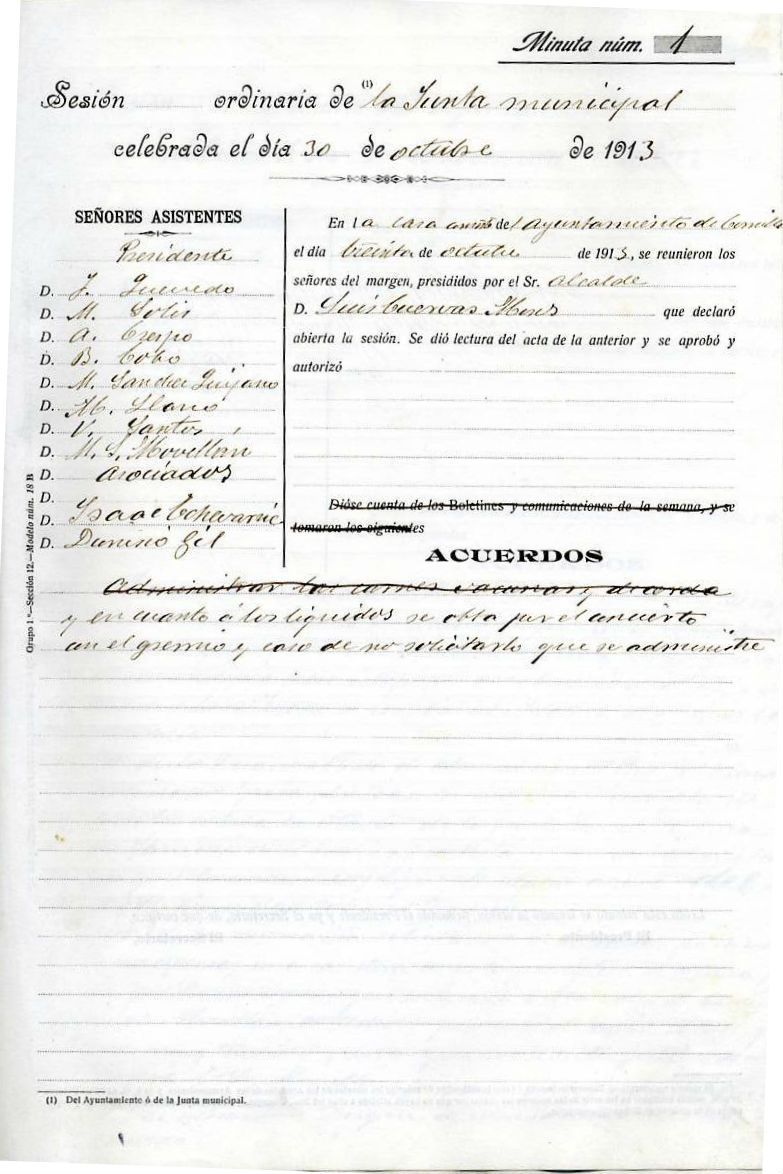 Minuta núm. 1
Sesión ordinaria de (1) la Junta municipal
celebrada el día 30 de octubre de 1913
SEÑORES ASISTENTES
Presidente
D. J. Quevedo
D. M. Solis
D. A. Crespo
D. B. Cobo
D. M. Sanchez Quijano
D. M. Llano
D. V. Santos
D. M. S. Movellan
D. Asociados
D.
D. Isaac Echevarria
D. Domino Gil
D.
En la casa del Ayuntamiento de
el día treinta de octubre de 1913, se reunieron los
señores del margen, presididos por el Sr. alcalde
D. Luis Cuervas Mons que declaró
abierta la sesión. Se dió lectura del acta de la anterior y se aprobó y
autorizó
Dióse cuenta de los Boletines y comunicaciones de la semana, y se
tomaron los siguientes
ACUERDOS
Administrar las carnes vacunas y de cerda
y en cuanto á los liquidos se obta por el concierto
con el gremio y caso de no solicitarlo que se administre
Grupo 1.º—Sección 12.—Modelo núm. 18 B
(1) Del Ayuntamiento ó de la Junta municipal.